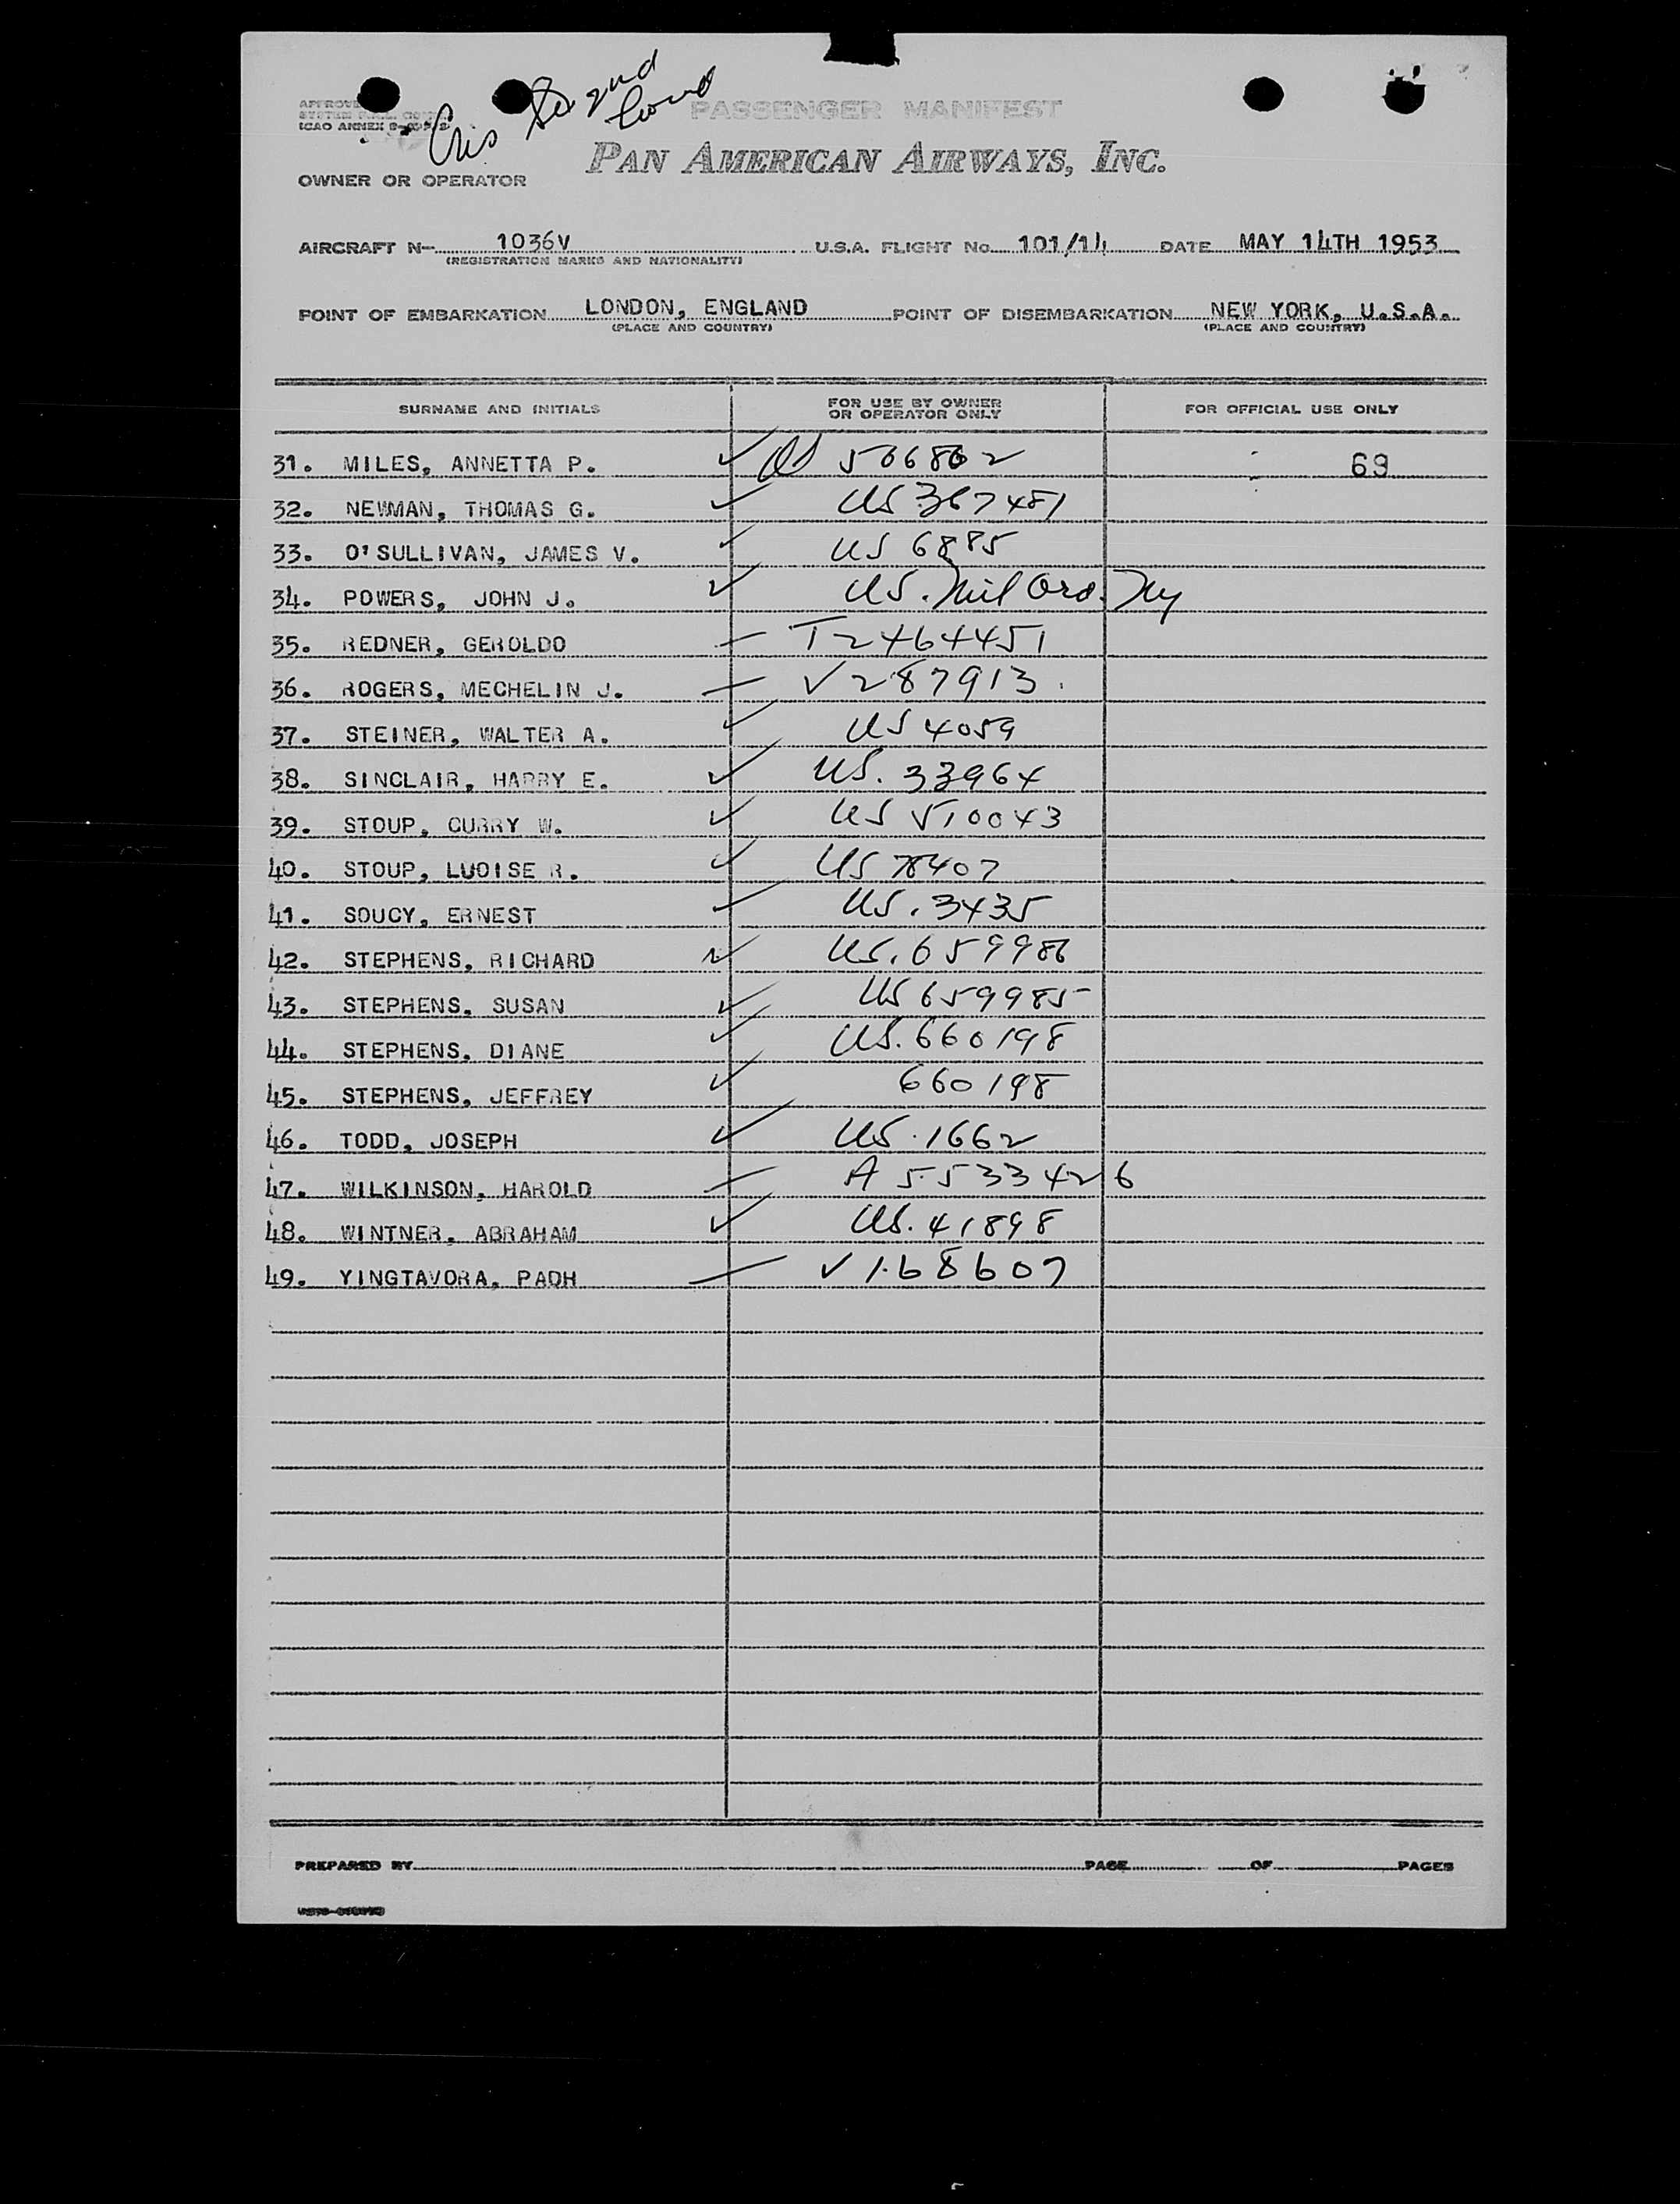 PASSENGER MANIFEST
ICAO ANNEX 9
PAN AMERICAN AIRWAYS, INC.
OWNER OR OPERATOR
AIRCRAFT N- 1036V U.S.A. FLIGHT No. 101/14 DATE MAY 14TH 1953
(REGISTRATION MARKS AND NATIONALITY)
POINT OF EMBARKATION LONDON, ENGLAND POINT OF DISEMBARKATION NEW YORK, U.S.A.
(PLACE AND COUNTRY) (PLACE AND COUNTRY)
SURNAME AND INITIALS FOR USE BY OWNER OR OPERATOR ONLY FOR OFFICIAL USE ONLY
31. MILES, ANNETTA P. ✓ US 566802 69
32. NEWMAN, THOMAS G. ✓ US 367481
33. O'SULLIVAN, JAMES V. ✓ US 6885
34. POWERS, JOHN J. ✓ US. Mil Ord.
35. REDNER, GEROLDO — T2464451
36. ROGERS, MECHELIN J. — V287913
37. STEINER, WALTER A. ✓ US 4059
38. SINCLAIR, HARRY E. ✓ US. 33964
39. STOUP, CURRY W. ✓ US 510043
40. STOUP, LUOISE R. ✓ US 78407
41. SOUCY, ERNEST ✓ US. 3435
42. STEPHENS, RICHARD ✓ US. 659986
43. STEPHENS, SUSAN ✓ US 659985
44. STEPHENS, DIANE ✓ US. 660198
45. STEPHENS, JEFFREY ✓ 660198
46. TODD, JOSEPH ✓ US. 1662
47. WILKINSON, HAROLD — A 5533426
48. WINTNER, ABRAHAM ✓ US. 41898
49. YINGTAVORA, PADH — V168607
PREPARED BY PAGE OF PAGES